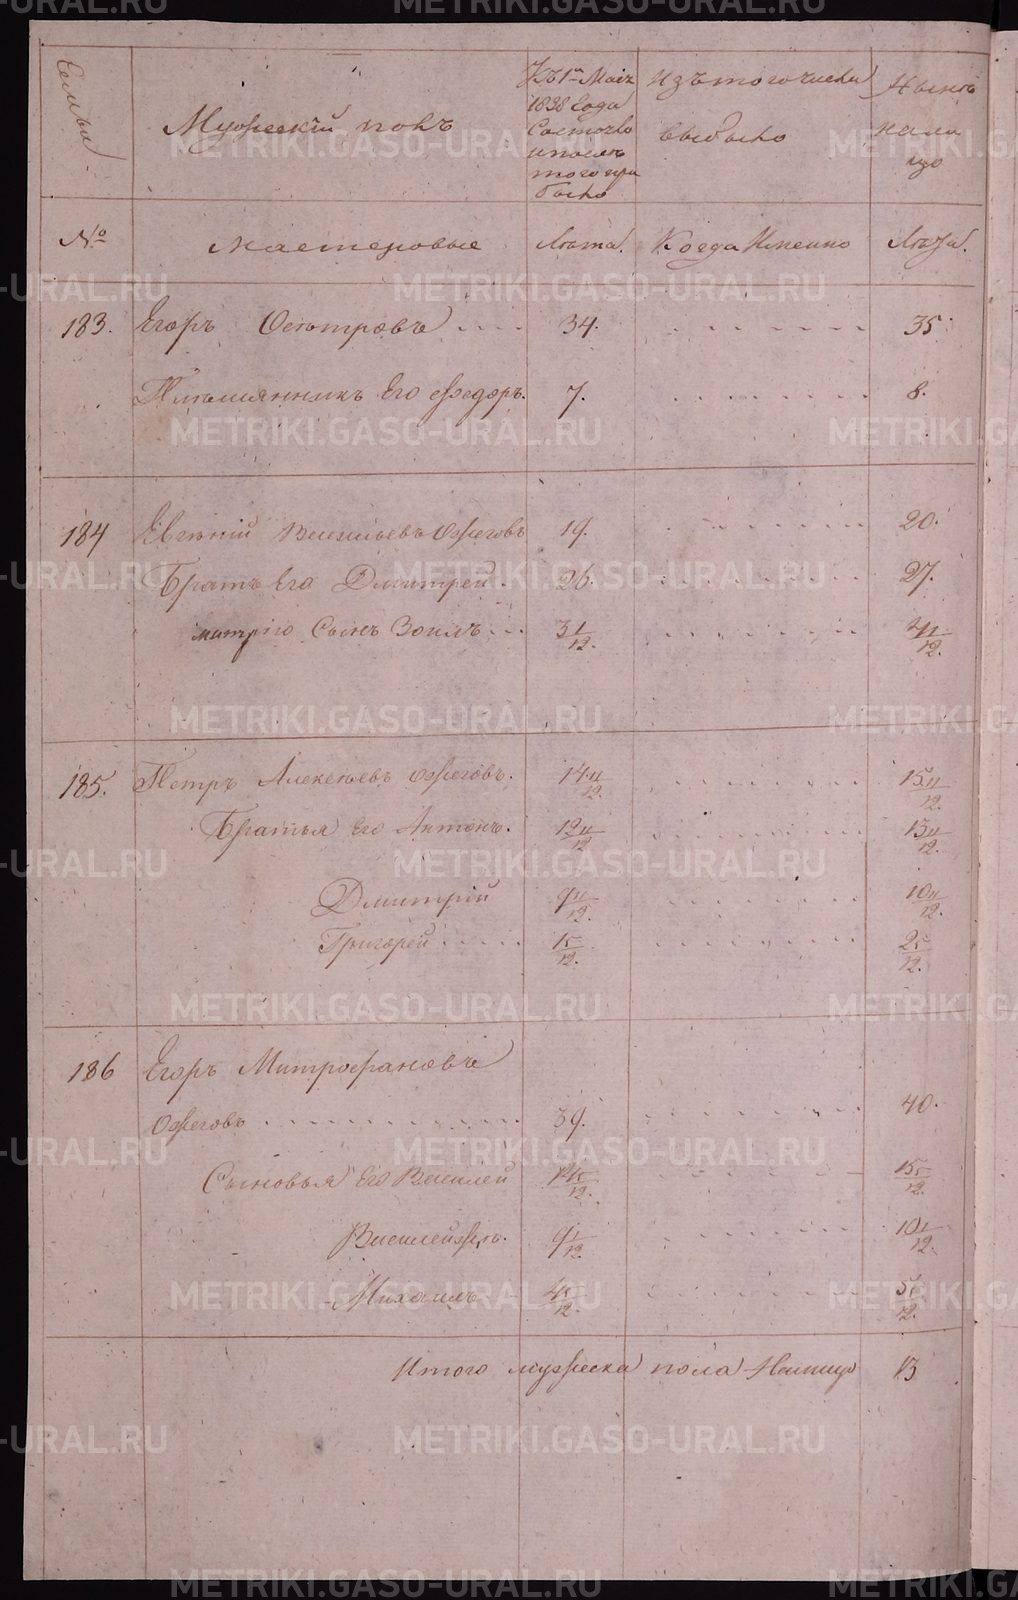 Семьи
Мужескiй полъ
Къ 1е Маiя
1838 Года
Состояло
и после
того при
было
Изъ того числа
выбыло
Ныне
нали
цо
№
мастеровые
Лета.
Когда Именно
Лета.
183. Егоръ Осютровъ 34. 35.
Племянникъ Его Федоръ. 7. 8.
184 Евгенiй Васильевъ Ожеговъ 19. 20.
Братъ Его Дмитрей. 26. 27.
митрiю Сынъ Зоилъ 3 1/12. 4 1/12.
185. Петръ Алексеевъ Ожеговъ. 14 11/12. 15 11/12.
Братья Его Антонъ. 12 11/12. 13 11/12.
Дмитрiй 9 11/12. 10 11/12.
Григорей 1 5/12. 2 5/12.
186 Егоръ Митрофановъ
Ожеговъ 39. 40.
Сыновья Его Василей 14 5/12. 15 5/12.
Василей же. 9 1/12. 10 1/12.
Михаилъ 4 1/12. 5 1/12.
Итого мужеска пола Налицо 13
METRIKI.GASO-URAL.RU